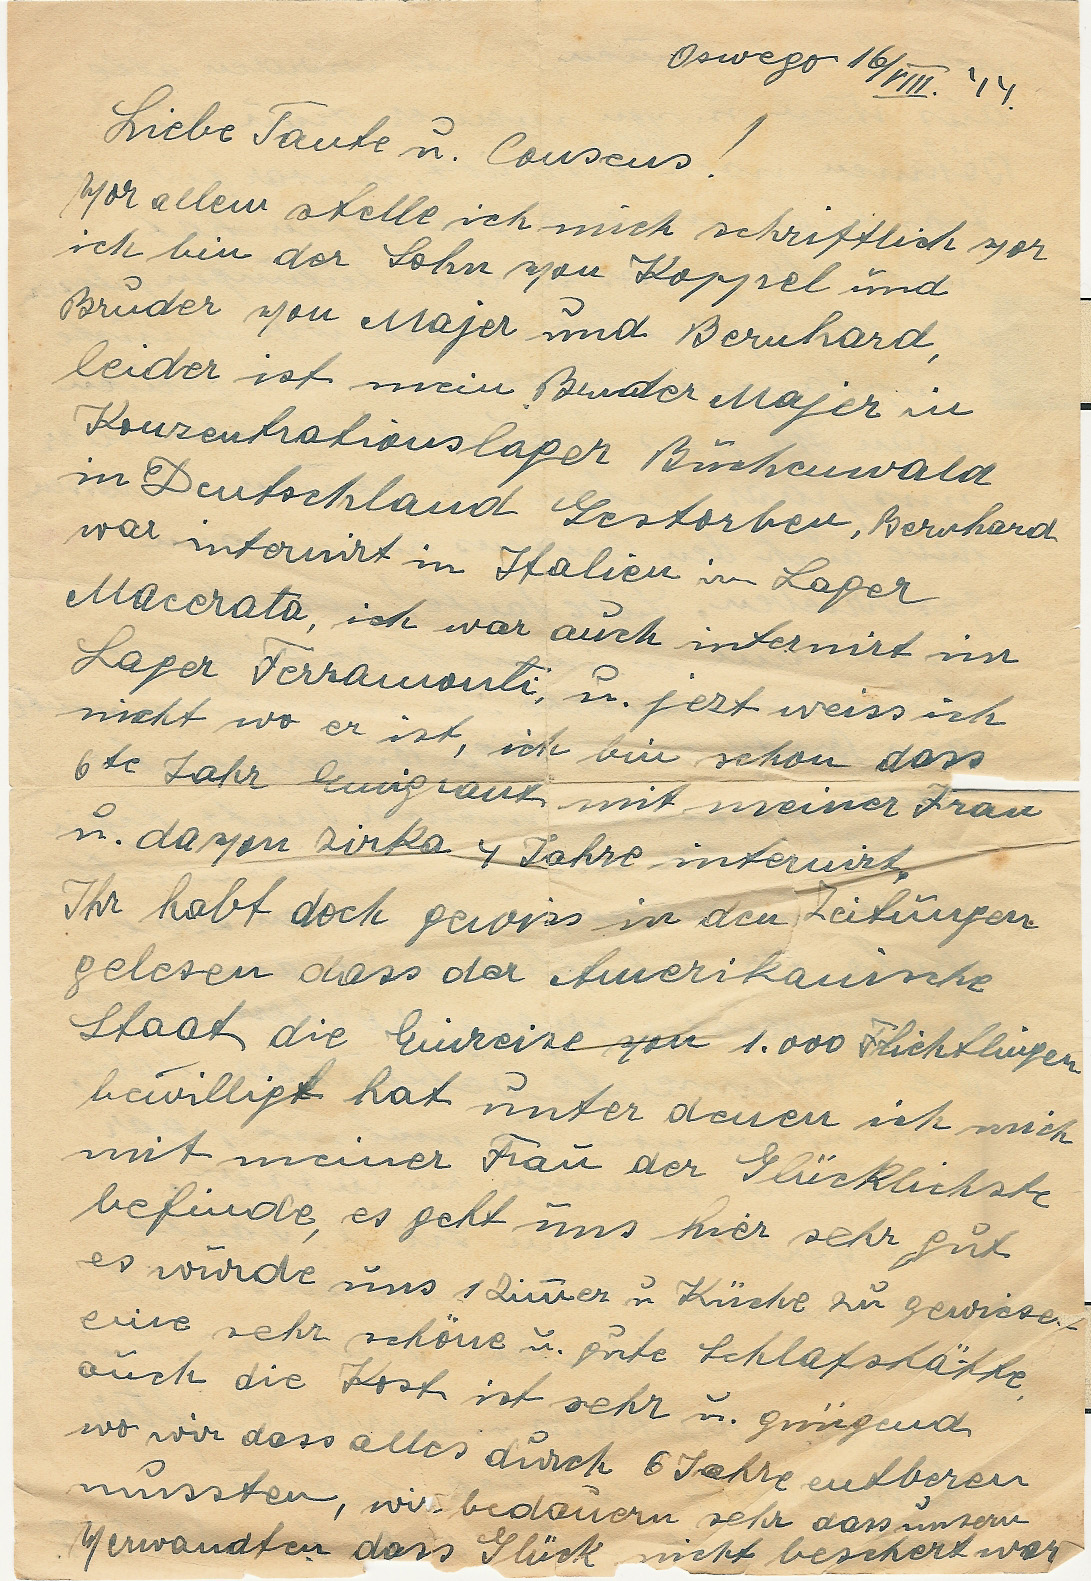 Oswego 16/VIII. '44.
Liebe Tante u. Cousens!
Vor allem stelle ich mich schriftlich vor
ich bin der Sohn von Koppel und
Bruder von Majer und Bernhard,
leider ist mein Bruder Majer in
Konzentrationslager Buchenwald
in Deutschland Gestorben, Bernhard
war internirt in Italien in Lager
Macerata, ich war auch internirt im
Lager Ferramonti, u. jezt weiss ich
nicht wo er ist, ich bin schon dass
6te Jahr Emigrant mit meiner Frau
u. davon zirka 4 Jahre internirt,
Ihr habt doch gewiss in den Zeitungen
gelesen dass der Amerikanische
Staat die Einreise von 1.000 Flichtlingen
bewilligt hat unter denen ich mich
mit meiner Frau der Glücklichste
befinde, es geht uns hier sehr gut
es wurde uns 1 Zim̅er u Küche zu gewiesen
eine sehr schöne u. gute Schlafstätte,
auch die Kost ist sehr u. gnügend
wo wir dass alles durch 6 Jahre entberen
mussten, wir bedauern sehr dass unsern
Verwandten dass Glück nicht beschert war